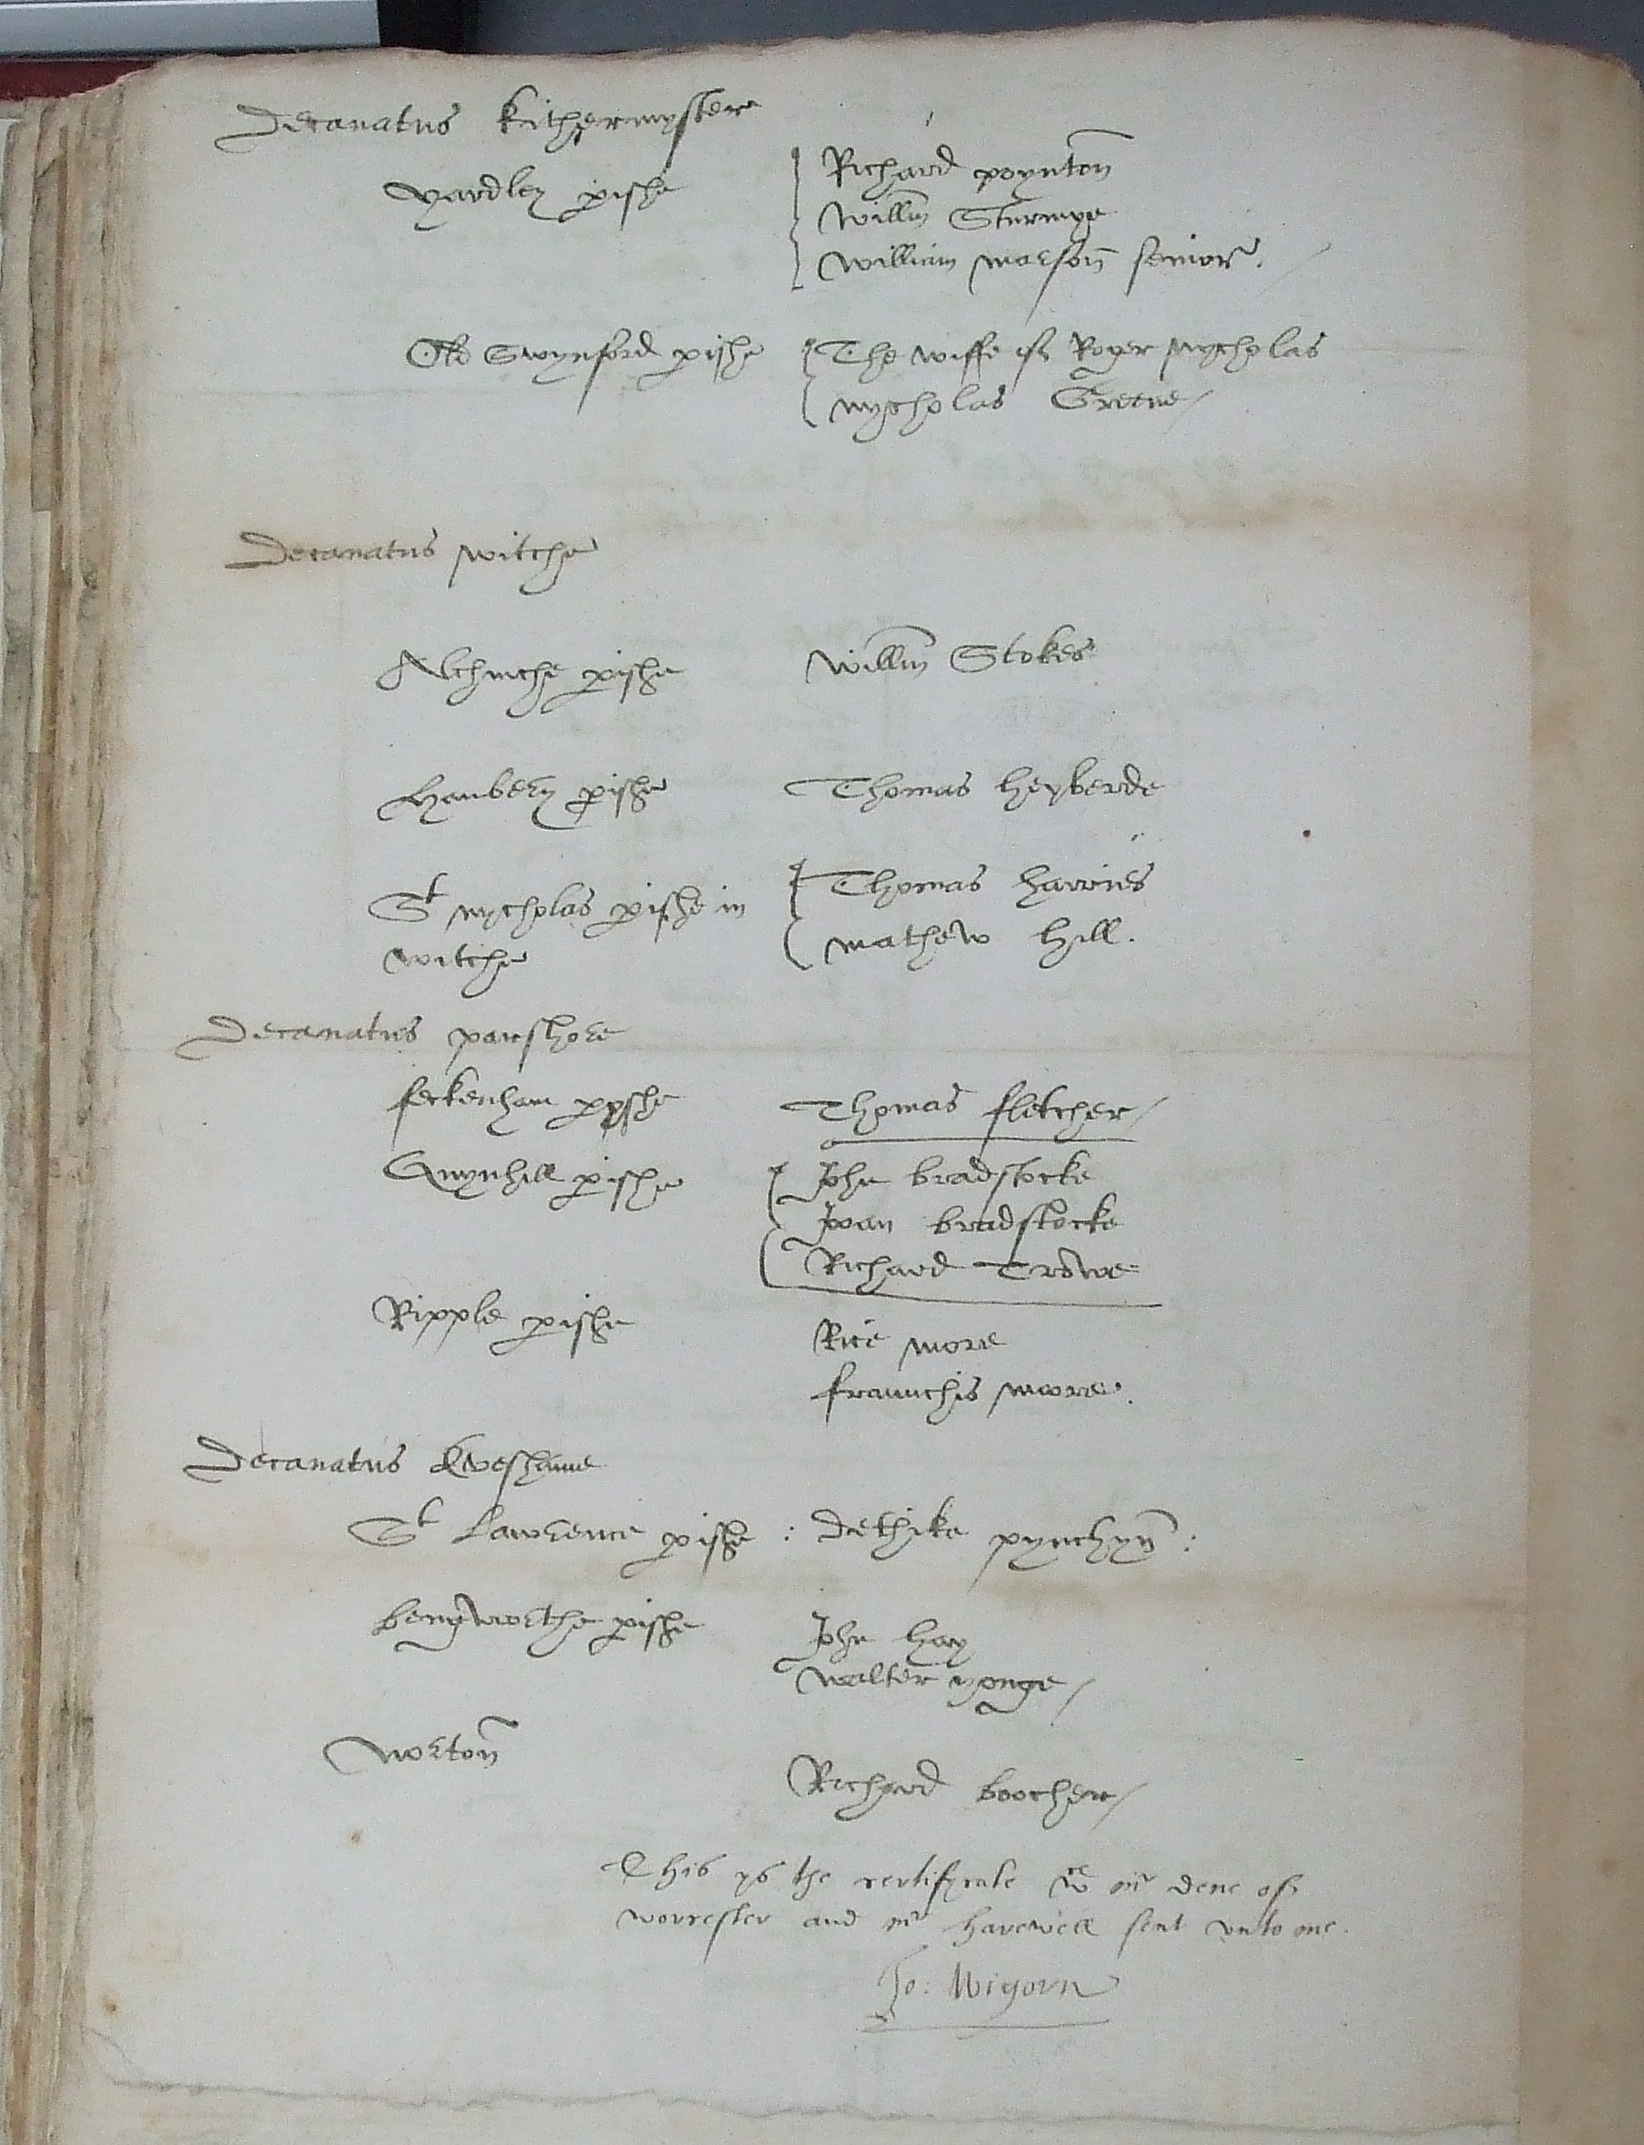 Decanatus kithermyster
Yardley pishe
Richard poynton
Willm Sturmye
William mason senior.
Old Swynford pishe
The wiffe of Roger nycholas
nycholas Greene
Decanatus witche
Alchurche pishe Willm Stokes
Hanbery pishe Thomas heyberde
St nycholas pishe in
witche
Thomas harries
mathew hill.
Decanatus parshore
feckenham pyshe Thomas fletcher
Gwynhill pishe John bradstocke
Joan bradstocke
Richard Trowe
Ripple pishe Rice more
fraunchis moore.
Decanatus Eveshame
St Lawrence pishe : dethike pynchyn :
bengworthe pishe John hay
walter yonge
norton
Richard boocher
This ys the certifycate wc mr dene of
worcester and mr harewell sent unto me.
Jo: Wigorn